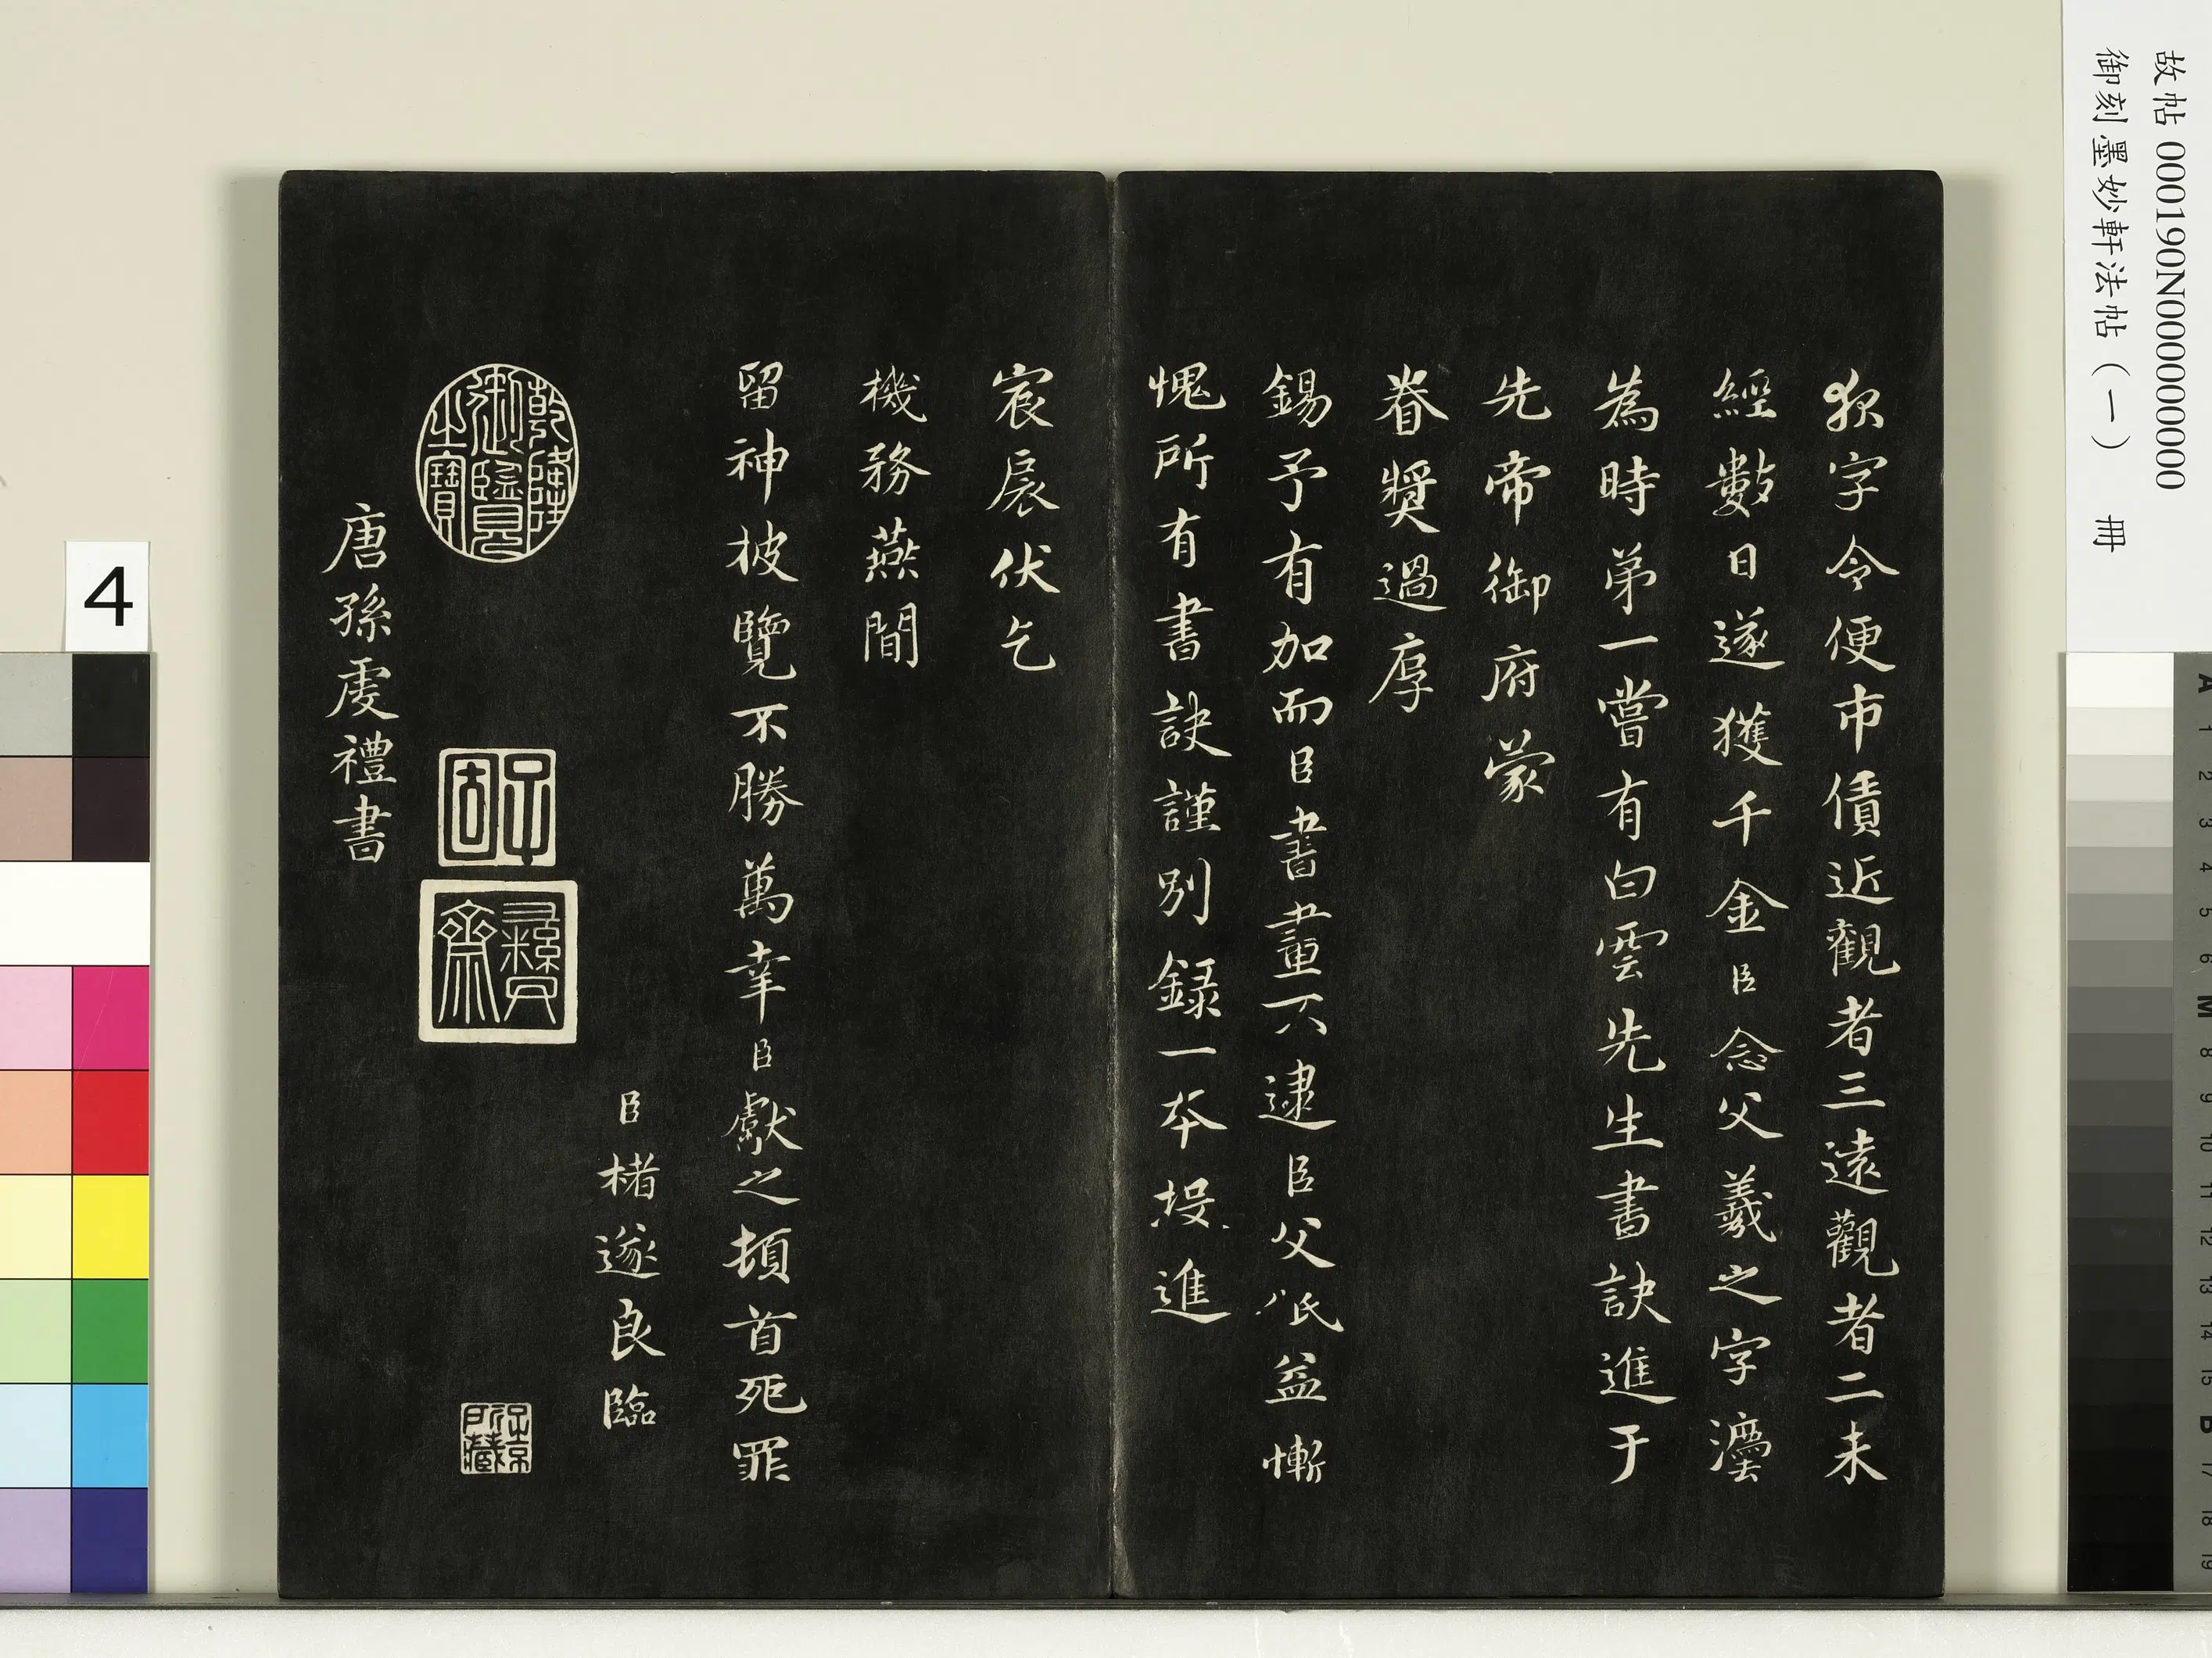 狀字令便市債近觀者三遠觀者二未
經數日遂獲千金臣念父羲之字法
為時第一嘗有白雲先生書訣進于
先帝御府蒙
眷獎過厚
錫予有加而臣書畫不逮臣父
益慚
愧所有書訣謹別錄一本投進
宸扆伏乞
機務燕閒
留神披覽不勝萬幸臣獻之頓首死罪
臣楮遂良臨
乾隆御覽之寶
子固
彝齋
唐孫虔禮書
故帖 000190N000000000
御刻墨妙軒法帖(一) 冊
4